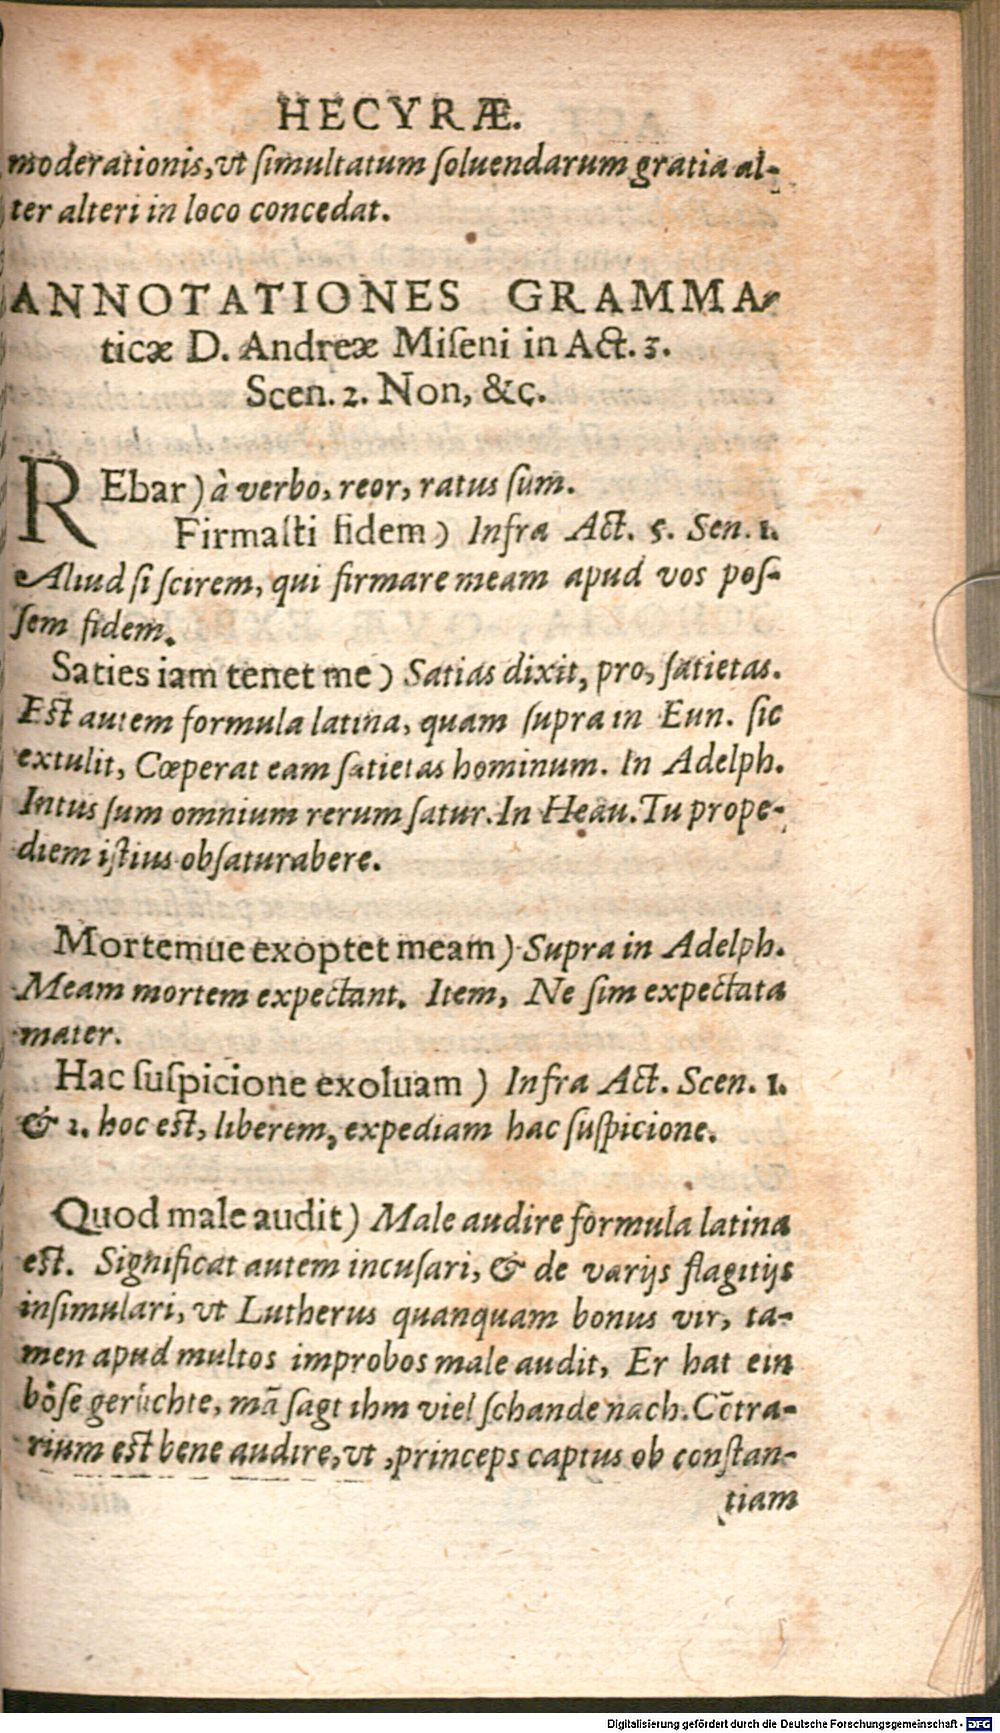 HECYRÆ.
moderationis, vt ſimultatum ſoluendarum gratia al-
ter alteri in loco concedat.
ANNOTATIONES GRAMMA-
ticæ D. Andreæ Miſeni in Act. 3.
Scen. 2. Non, &c.
REbar) à verbo, reor, ratus ſum.
Firmaſti fidem) Infra Act. 5. Sen. 1.
Aliud ſi ſcirem, qui firmare meam apud vos poſ-
ſem fidem.
Saties iam tenet me) Satias dixit, pro, ſatietas.
Eſt autem formula latina, quam ſupra in Eun. ſic
extulit, Cœperat eam ſatietas hominum. In Adelph.
Intus ſum omnium rerum ſatur. In Heau. Tu prope-
diem iſtius obſaturabere.
Mortemue exoptet meam) Supra in Adelph.
Meam mortem expectant. Item, Ne ſim expectata
mater.
Hac ſuſpicione exoluam) Infra Act. Scen. 1.
& 2. hoc eſt, liberem, expediam hac ſuſpicione.
Quod male audit) Male audire formula latina
eſt. Significat autem incuſari, & de varijs flagitijs
inſimulari, vt Lutherus quanquam bonus vir, ta-
men apud multos improbos male audit, Er hat ein
boͤſe geruͤchte, mā ſagt ihm viel ſchande nach. Cōtra-
rium eſt bene audire, vt, princeps captus ob conſtan-
tiam
Digitalisierung gefördert durch die Deutsche Forschungsgemeinschaft - DFG